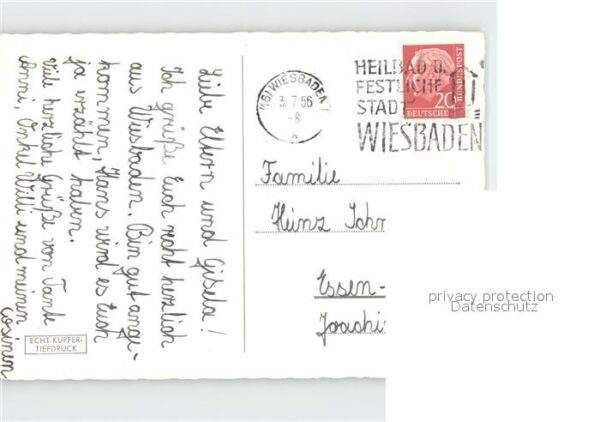 Liebe Eltern und Gisela!
Ich grüße Euch recht herzlich
aus Wiesbaden. Bin gut ange-
kommen, Hans wird es Euch
ja erzählt haben.
Viele herzliche Grüße von Tante
Änni, Onkel Willi und meinen
Cosinen
ECHT KUPFER-
TIEFDRUCK
(16) WIESBADEN 1
3.7.56
-8
HEILBAD U.
FESTLICHE
STADT
WIESBADEN
DEUTSCHE
BUNDESPOST
20
Familie
Heinz John
Essen-
Joachi
privacy protection
Datenschutz